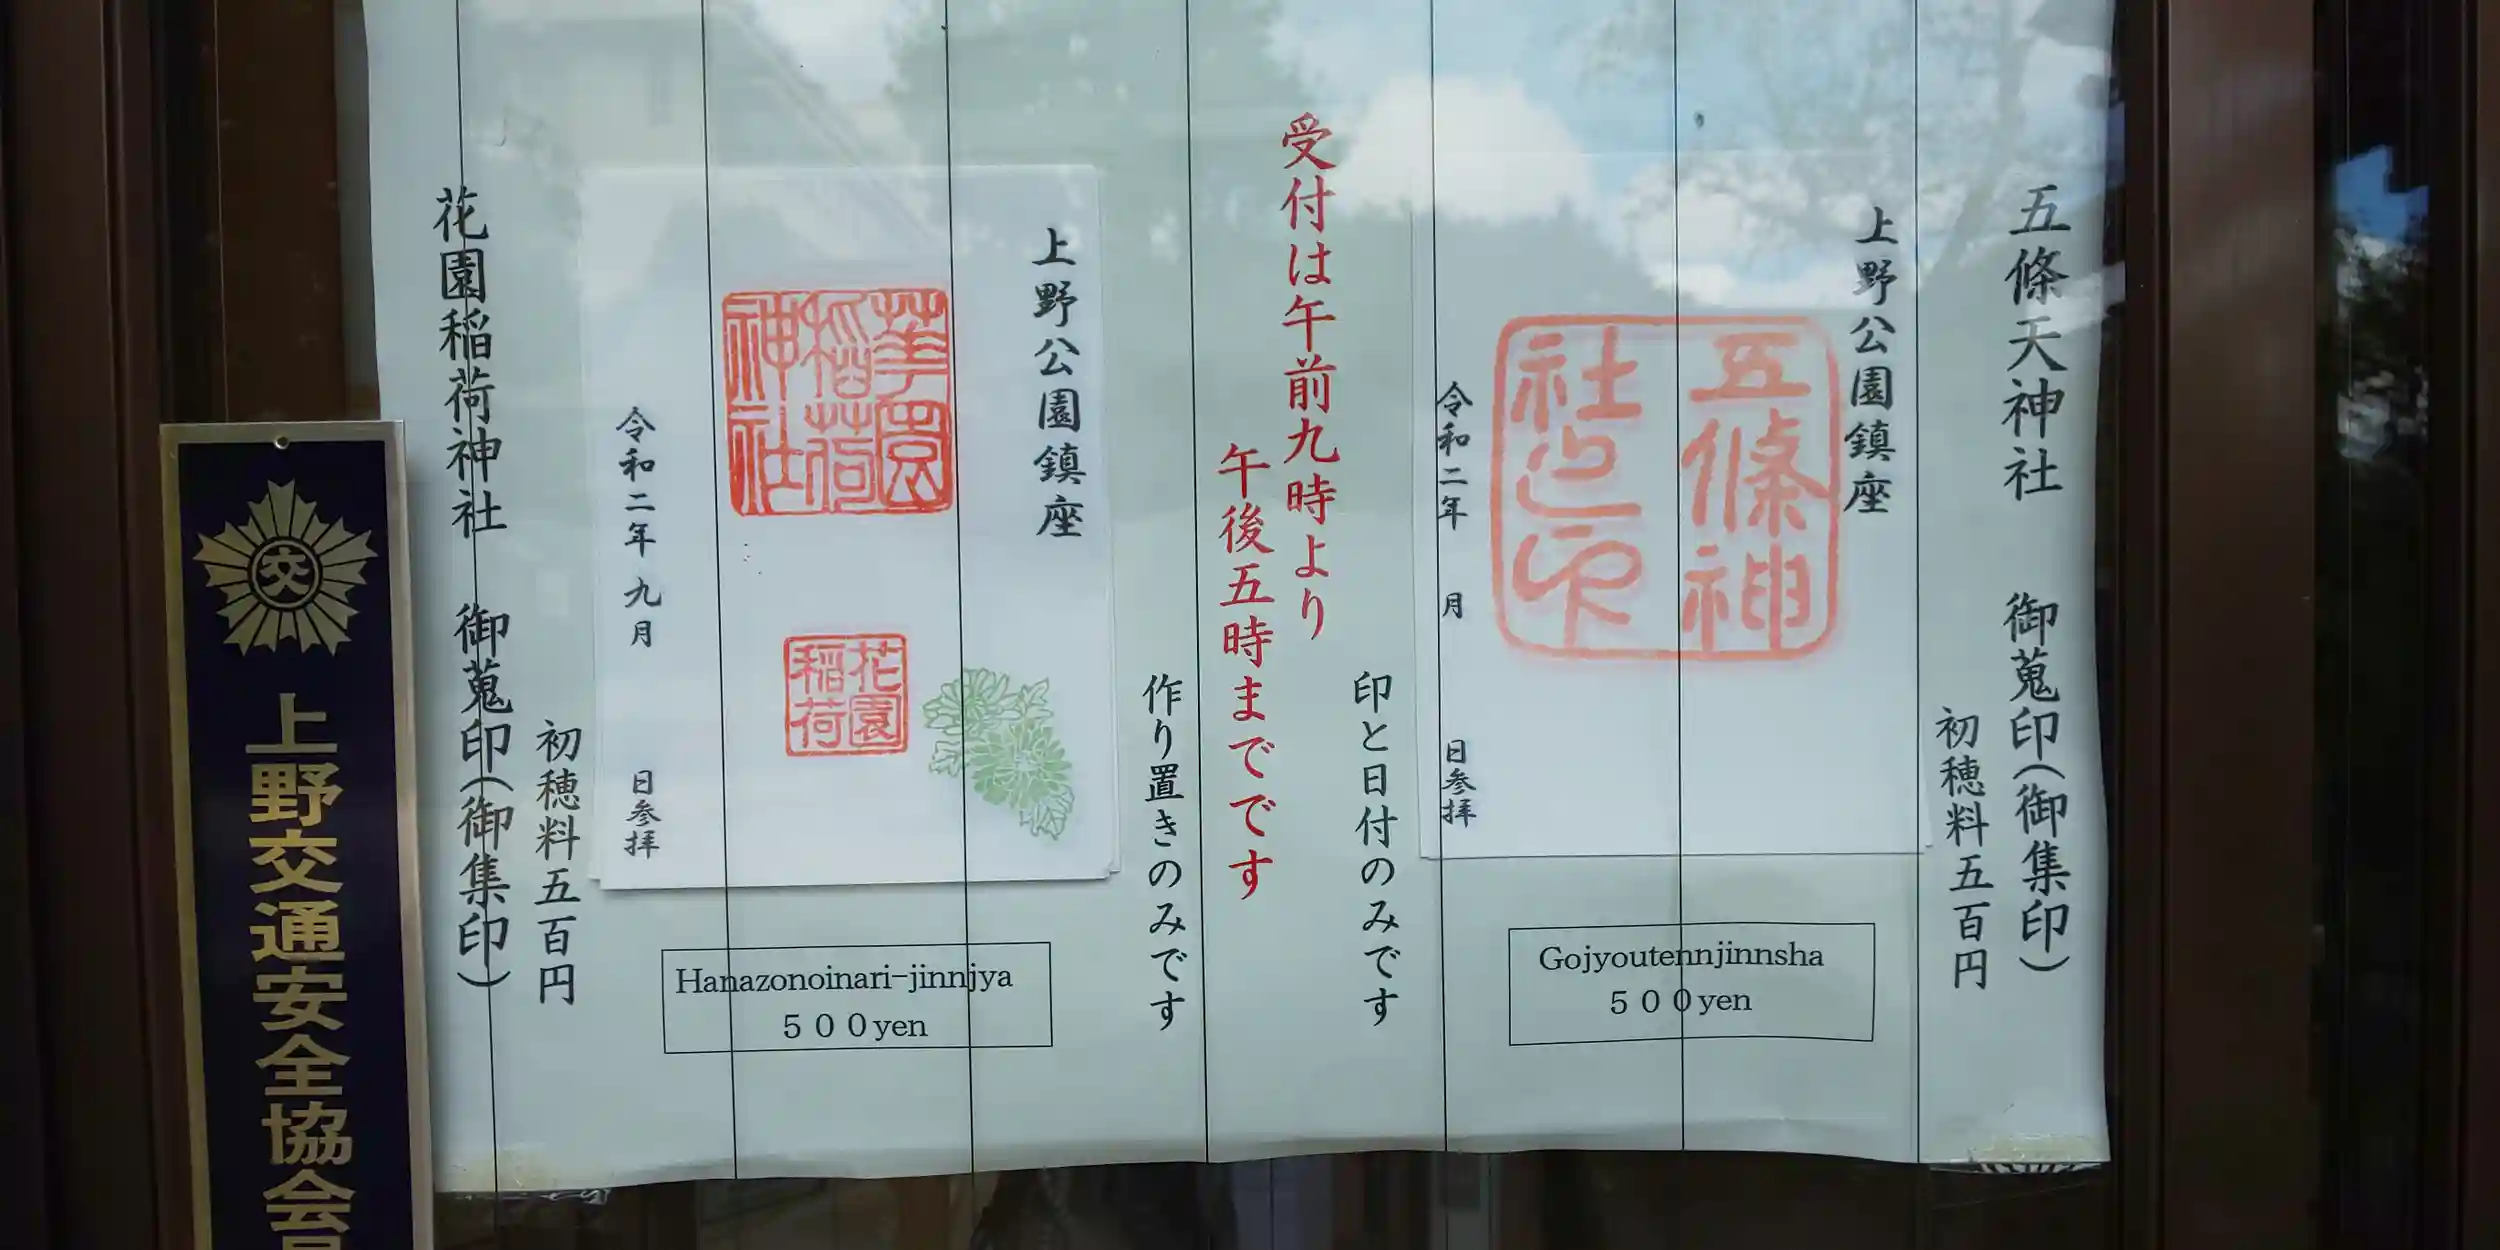 五條天神社　御蒐印(御集印)
初穂料五百円
上野公園鎮座
五條神
社之印
令和二年　月　日参拝
Gojyoutennjinnsha
５００yen
印と日付のみです
受付は午前九時より
午後五時までです
作り置きのみです
上野公園鎮座
華園
稲荷
神社
花園
稲荷
令和二年　九月　日参拝
Hanazonoinari-jinnjya
５００yen
初穂料五百円
花園稲荷神社　御蒐印(御集印)
交
上野交通安全協会